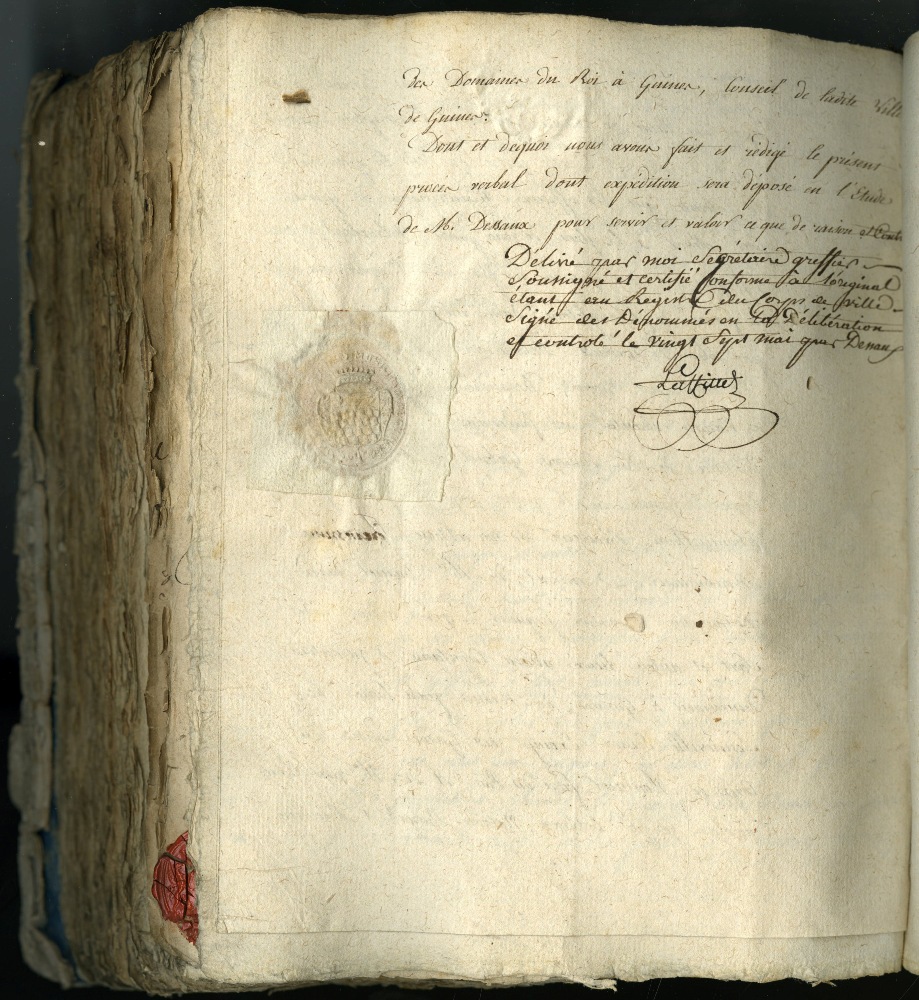 des Domaines du Roi à Guines, Conseil de ladite Ville
de Guines.
Dont et dequoi nous avons fait et rédigé le présent
procès verbal dont expédition sera déposé en l'Etude
de M. Dessaux pour servir et valoir ce que de raison et
Delivré par moi Segrétaire greffier
Soussigné et certifié Conforme à l'original
étant au Registre du Corps de Ville
Signé des Dénommés en la Délibération
et controlé le vingt Sept mai par Dessaux